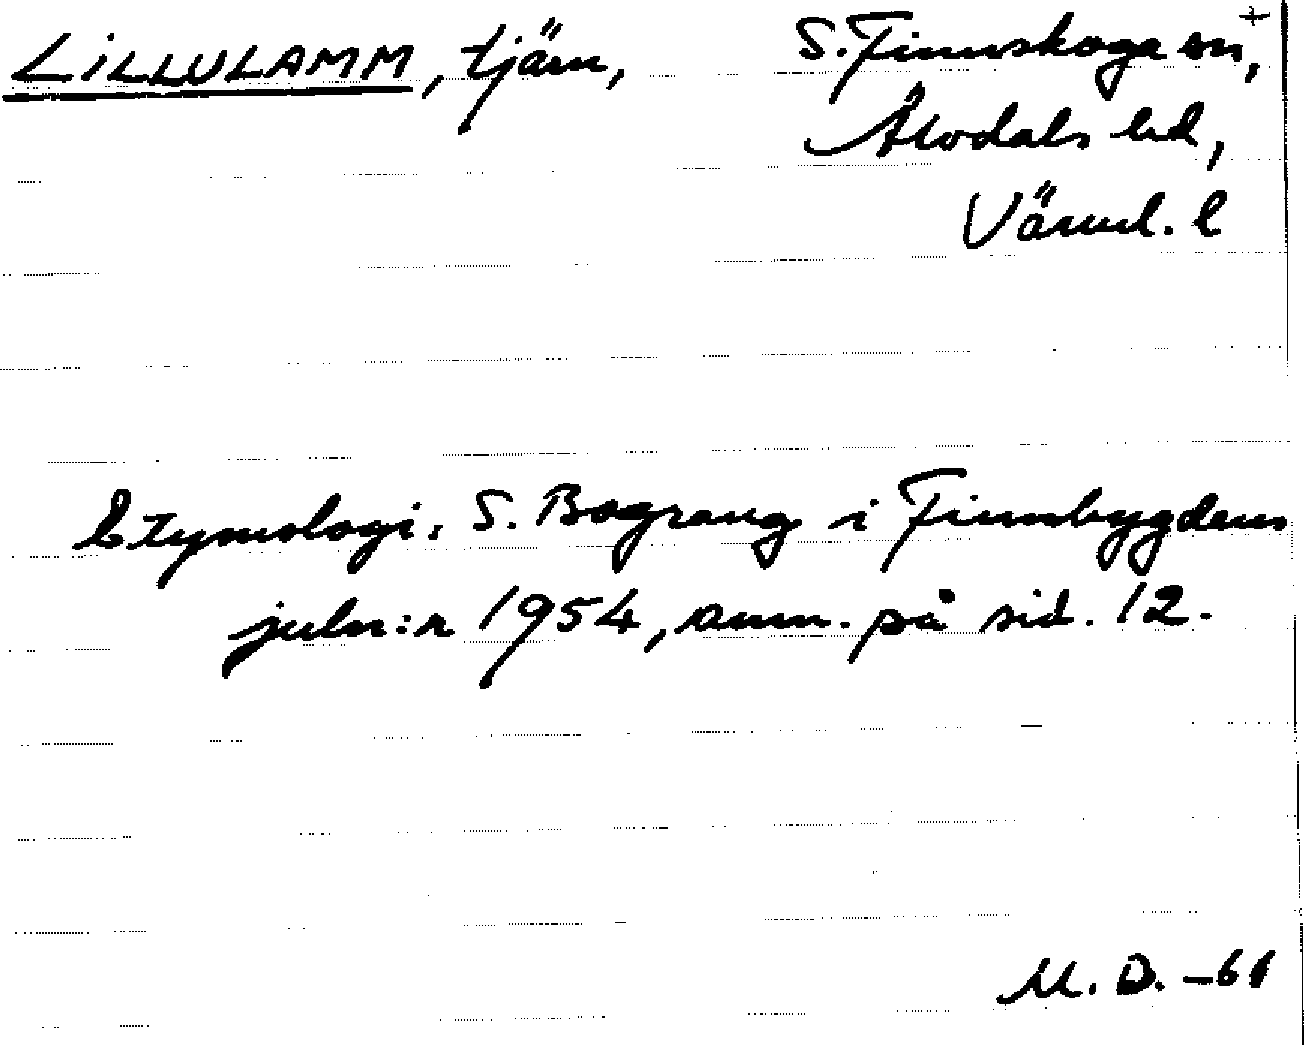 LILLULAMM, tjärn, S. Finnskoga sn,
Älvdals hd,
Värml. l
Etymologi: S. Bograng i Finnbygdens
juln:r 1954, anm. på sid. 12.
M. D. -61